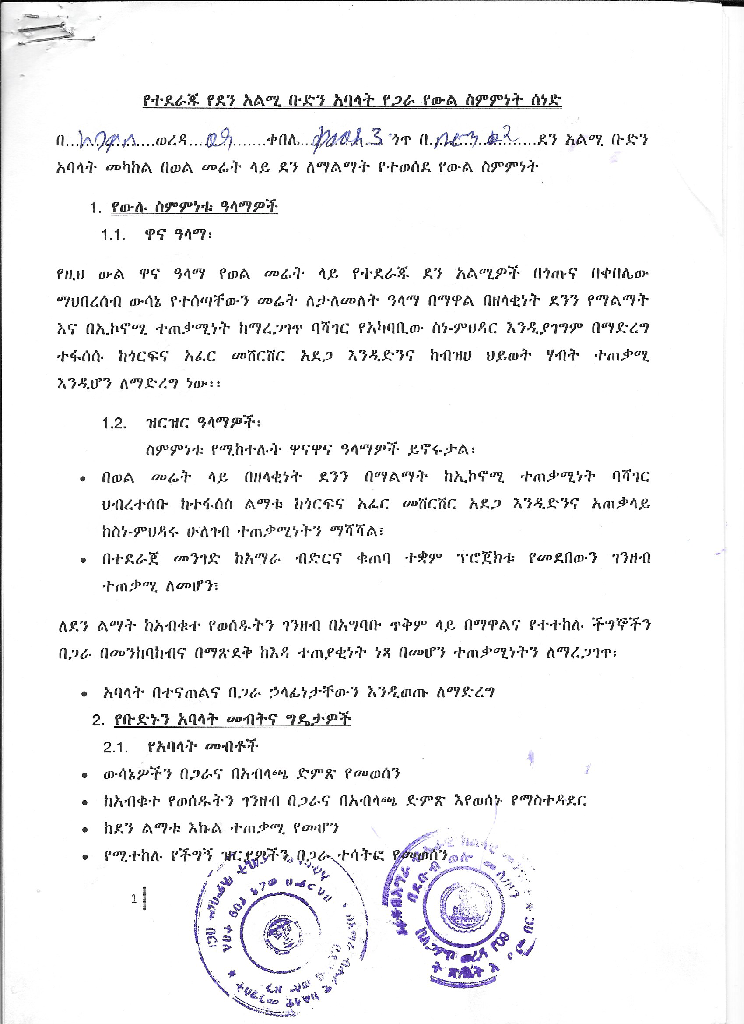 የተደራጁ የደን አልሚ ቡድን አባላት የጋራ የውል ስምምነት ሰነድ
በ...............ወረዳ...............ቀበሌ...............3 ንጥ በ...............ደን አልሚ ቡድን
አባላት መካከል በወል መሬት ላይ ደን ለማልማት የተወሰደ የውል ስምምነት
1. የውሉ ስምምነቱ ዓላማዎች
1.1. ዋና ዓላማ፡
የዚህ ውል ዋና ዓላማ የወል መሬት ላይ የተደራጁ ደን አልሚዎች በጎጡና በቀበሌው
ማህበረሰብ ውሳኔ የተሰጣቸውን መሬት ለታለመለት ዓላማ በማዋል በዘላቂነት ደንን የማልማት
እና በኢኮኖሚ ተጠቃሚነት ከማረጋገጥ ባሻገር የአካባቢው ስነ-ምህዳር እንዲያገግም በማድረግ
ተፋሰሱ ከጎርፍና አፈር መሸርሸር አደጋ እንዲድንና ከብዝሀ ህይወት ሃብት ተጠቃሚ
እንዲሆን ለማድረግ ነው፡፡
1.2. ዝርዝር ዓላማዎች፡
ስምምነቱ የሚከተሉት ዋናዋና ዓላማዎች ይኖሩታል፡
• በወል መሬት ላይ በዘላቂነት ደንን በማልማት ከኢኮኖሚ ተጠቃሚነት ባሻገር
ህብረተሰቡ ከተፋሰስ ልማቱ ከጎርፍና አፈር መሸርሸር አደጋ እንዲድንና አጠቃላይ
ከስነ-ምህዳሩ ሁለገብ ተጠቃሚነትን ማሻሻል፤
• በተደራጀ መንገድ ከአማራ ብድርና ቁጠባ ተቋም ፕሮጀክቱ የመደበውን ገንዘብ
ተጠቃሚ ለመሆን፤
ለደን ልማት ከአብቁተ የወሰዱትን ገንዘብ በአግባቡ ጥቅም ላይ በማዋልና የተተከሉ ችግኞችን
በጋራ በመንከባከብና በማጽደቅ ከእዳ ተጠያቂነት ነጻ በመሆን ተጠቃሚነትን ለማረጋገጥ፡
• አባላት በተናጠልና በጋራ ኃላፊነታቸውን እንዲወጡ ለማድረግ
2. የቡድኑን አባላት መብትና ግዴታዎች
2.1. የአባላት መብቶች
• ውሳኔዎችን በጋራና በአብላጫ ድምጽ የመወሰን
• ከአብቁተ የወሰዱትን ገንዘብ በጋራና በአብላጫ ድምጽ እየወሰኑ የማስተዳደር
• ከደን ልማቱ እኩል ተጠቃሚ የመሆን
• የሚተከሉ የችግኝ ዝርያዎችን በጋራ ተሳትፎ የመወሰን
1